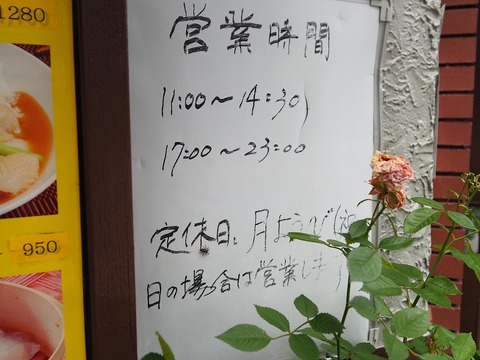 1280
営業時間
11:00〜14:30
17:00〜23:00
950
定休日: 月ようび(祝
日の場合は営業します